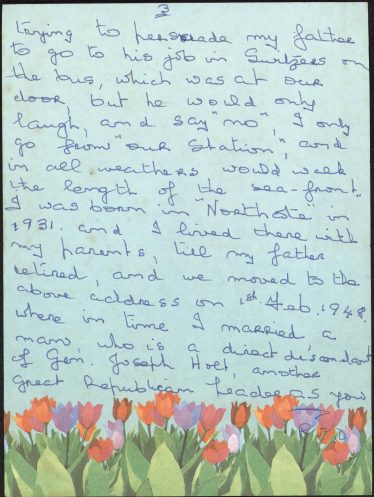 3
trying to persuade my father
to go to his job in Switzers on
the bus, which was at our
door, but he would only
laugh, and say "no", I only
go from "our Station", and
in all weathers, would walk
the length of the sea-front.
I was born in "Northcote in
1931. and I lived there with
my parents, till my father
retired, and we moved to the
above address on 1st Feb. 1948.
where in time I married a
man, who is a direct descendant
of Gen. Joseph Holt, another
Great Republican Leader as you
P.T.O